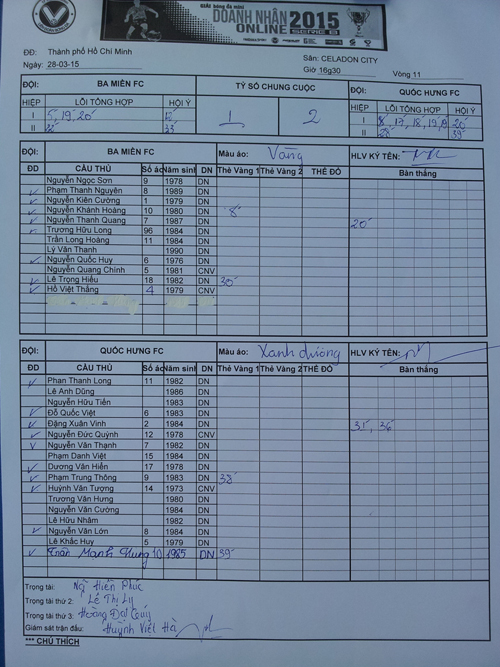 GIẢI bóng đá mini
DOANH NHÂN 2015
ONLINE SERIE B
ĐĐ: Thành phố Hồ Chí Minh Sân: CELADON CITY
Ngày: 28-03-15 Giờ 16g30 Vòng 11
ĐỘI: BA MIỀN FC TỶ SỐ CHUNG CUỘC ĐỘI: QUỐC HƯNG FC
HIỆP LỖI TỔNG HỢP HỘI Ý 1 2 HIỆP LỖI TỔNG HỢP HỘI Ý
I 5, 19, 20' 12' I 8, 17, 18, 19, 19 20'
II 22' 33' II 28' 39'
ĐỘI: BA MIỀN FC Màu áo: Vàng HLV KÝ TÊN:
ĐD CẦU THỦ Số áo Năm sinh DN Thẻ Vàng 1 Thẻ Vàng 2 THẺ ĐỎ Bàn thắng
Nguyễn Ngọc Sơn 9 1978 DN
Phạm Thanh Nguyên 8 1989 DN
Nguyễn Kiên Cường 1 1979 DN
Nguyễn Khánh Hoàng 10 1980 DN 8'
Nguyễn Thanh Quang 7 1987 DN 20'
Trương Hữu Long 96 1984 DN
Trần Long Hoàng 11 1984 DN
Lý Văn Thanh 1990 DN
Nguyễn Quốc Huy 6 1976 DN
Nguyễn Quang Chính 5 1981 CNV
Lê Trọng Hiếu 18 1982 DN 30'
Hồ Việt Thắng 4 1979 CNV
ĐỘI: QUỐC HƯNG FC Màu áo: Xanh dương HLV KÝ TÊN:
ĐD CẦU THỦ Số áo Năm sinh DN Thẻ Vàng 1 Thẻ Vàng 2 THẺ ĐỎ Bàn thắng
Phan Thanh Long 11 1982 DN
Lê Anh Dũng 1986 DN
Nguyễn Hữu Tiến 1983 DN
Đỗ Quốc Việt 6 1983 DN
Đặng Xuân Vinh 2 1984 DN 31', 36'
Nguyễn Đức Quỳnh 12 1978 CNV
Nguyễn Văn Thạnh 7 1982 DN
Phạm Danh Việt 15 1984 DN
Dương Văn Hiển 17 1978 DN
Phạm Trung Thông 9 1983 DN 38'
Huỳnh Văn Tượng 14 1973 CNV
Trương Văn Hưng 1980 DN
Nguyễn Văn Cường 1984 DN
Lê Hữu Nhâm 1982 DN
Nguyễn Văn Lớn 8 1984 DN
Lê Khắc Huy 5 1979 DN
Trần Mạnh Hùng 10 1985 DN 39'
Trọng tài: Ng Hiền Phúc
Trọng tài thứ 2: Lê Thi Ly
Trọng tài thứ 3: Hoàng Đạt Quý
Giám sát trận đấu: Huỳnh Việt Hà
*** CHÚ THÍCH